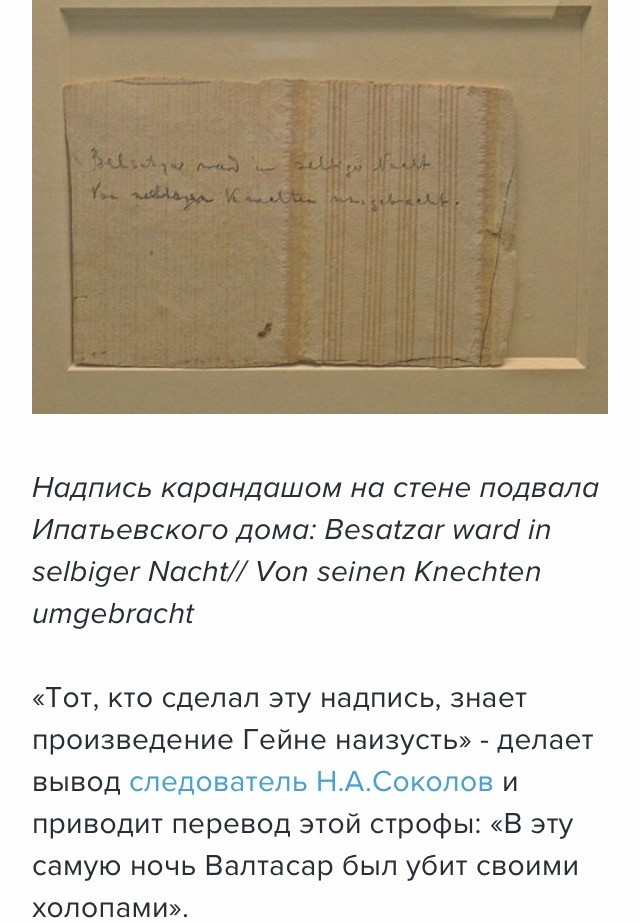 Belsatzar ward in selbiger Nacht
Von selbigen Knechten umgebracht.
Надпись карандашом на стене подвала
Ипатьевского дома: Besatzar ward in
selbiger Nacht// Von seinen Knechten
umgebracht
«Тот, кто сделал эту надпись, знает
произведение Гейне наизусть» - делает
вывод следователь Н.А.Соколов и
приводит перевод этой строфы: «В эту
самую ночь Валтасар был убит своими
холопами».